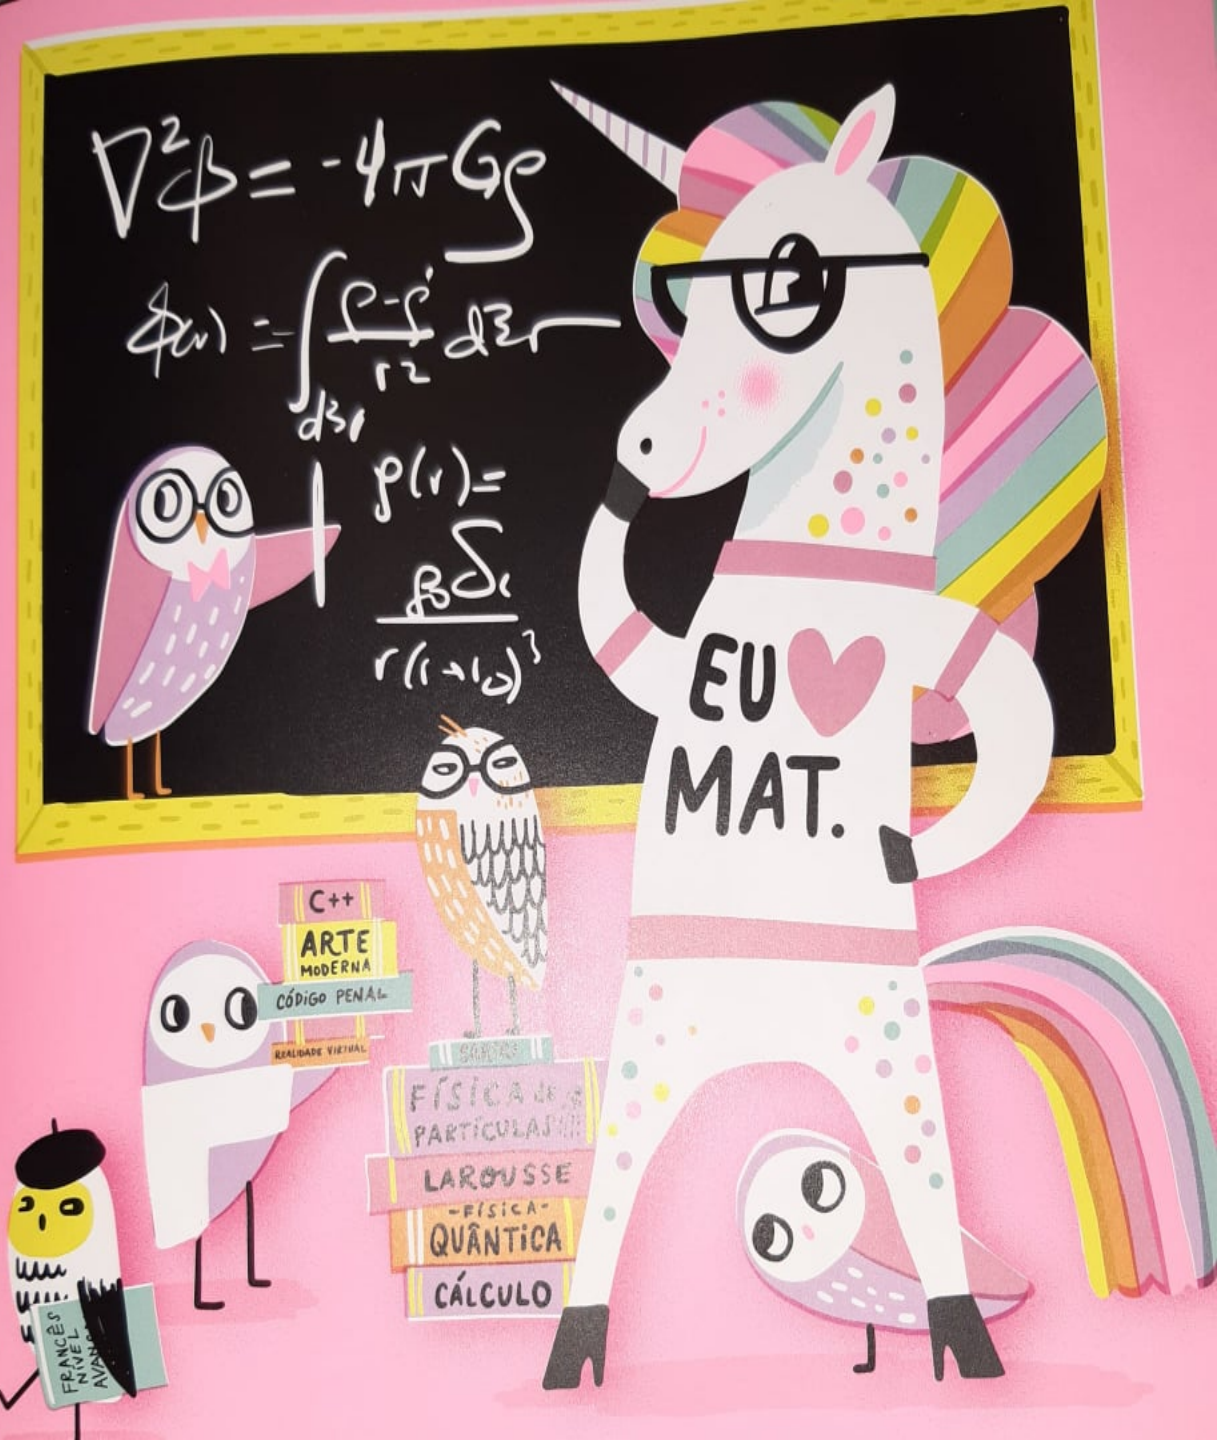 ∇²ϕ = -4πGρ
ϕ(r) = -∫ ρ-ρ' / r2 d3r
d3r
ρ(r) =
r(1+r
EU ♥
MAT.
C++
ARTE
MODERNA
CÓDIGO PENAL
REALIDADE VIRTUAL
FÍSICA de
PARTÍCULAS
LAROUSSE
-FÍSICA-
QUÂNTICA
CÁLCULO
FRANCÊS
NÍVEL